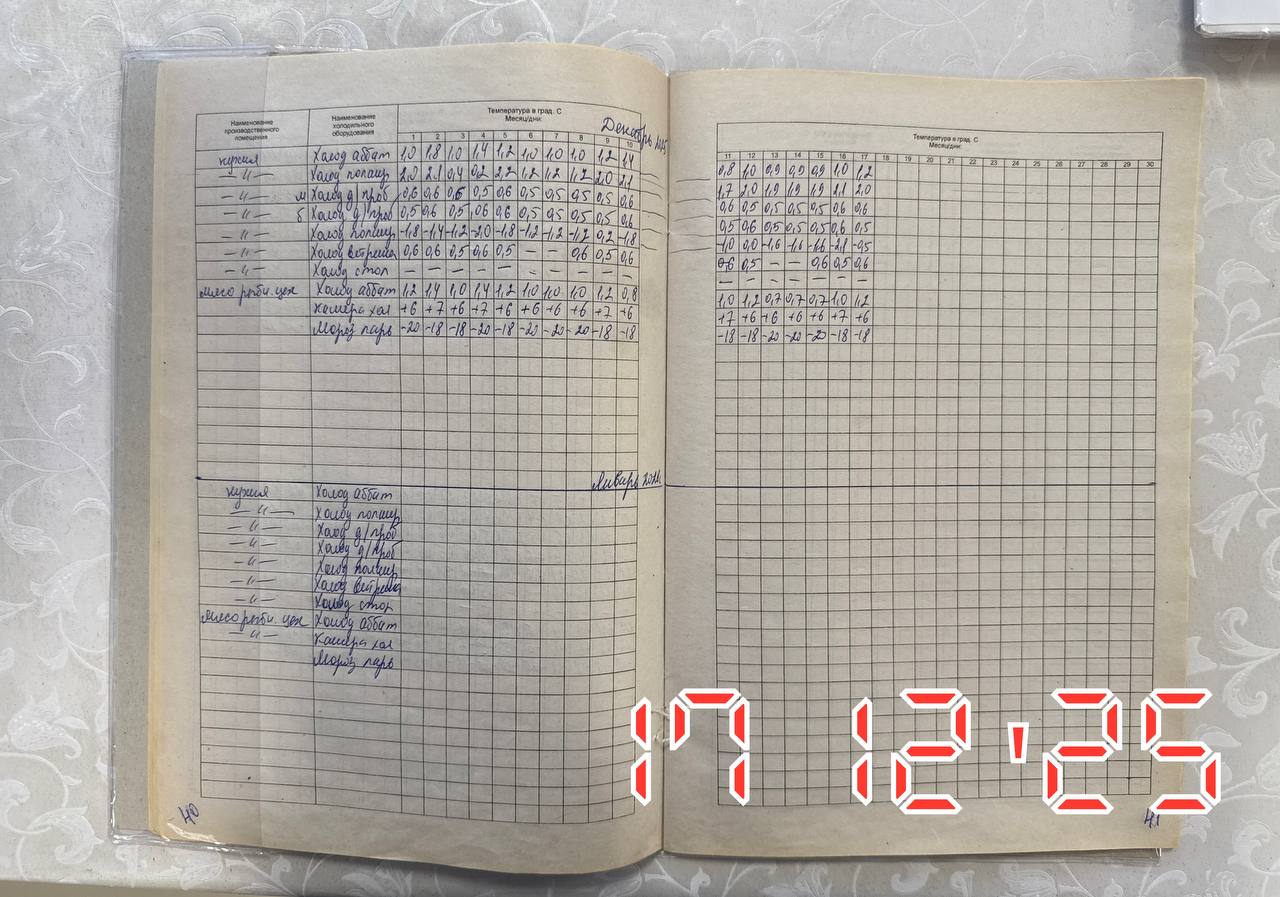 Температура в град. С
Месяц/дни:
Декабрь 2025
Наименование производственного помещения
Наименование холодильного оборудования
1 2 3 4 5 6 7 8 9 10
кухня Холод аббат 1,0 1,8 1,0 1,4 1,2 1,0 1,0 1,0 1,2 1,4
— " — Холод 2,0 2,1 0,4 0,2 2,2 1,2 1,2 1,2 2,0 2,1
— " — м Холод д/проб 0,6 0,6 0,6 0,5 0,6 0,5 0,5 0,5 0,5 0,6
— " — б Холод д/проб 0,5 0,6 0,5 0,6 0,6 0,5 0,5 0,5 0,5 0,6
— " — Холод -1,8 -1,4 -1,2 -2,0 -1,8 -1,2 -1,2 -1,2 0,2 -1,8
— " — Холод витрина 0,6 0,6 0,5 0,6 0,5 — — 0,6 0,5 0,6
— " — Холод стол — — — — — — — — — —
мясо рыбн. цех Холод аббат 1,2 1,4 1,0 1,4 1,2 1,0 1,0 1,0 1,2 0,8
Камера хол +6 +7 +6 +7 +6 +6 +6 +6 +7 +6
Мороз ларь -20 -18 -18 -20 -18 -20 -20 -20 -18 -18
Январь 2026
кухня Холод аббат
— " — Холод
— " — Холод д/проб
— " — Холод д/проб
— " — Холод
— " — Холод витрина
— " — Холод стол
мясо рыбн. цех Холод аббат
— " — Камера хол
Мороз ларь
40
Температура в град. С
Месяц/дни:
11 12 13 14 15 16 17 18 19 20 21 22 23 24 25 26 27 28 29 30
0,8 1,0 0,9 0,9 0,9 1,0 1,2
1,7 2,0 1,9 1,9 1,9 2,1 2,0
0,6 0,5 0,5 0,5 0,5 0,6 0,6
0,5 0,6 0,5 0,5 0,5 0,6 0,5
-1,0 0,0 -1,6 -1,6 -1,6 -2,1 -0,5
0,6 0,5 — — 0,6 0,5 0,6
— — — — — — —
1,0 1,2 0,7 0,7 0,7 1,0 1,2
+7 +6 +6 +6 +6 +7 +6
-18 -18 -20 -20 -20 -18 -18
41
17 12 '25